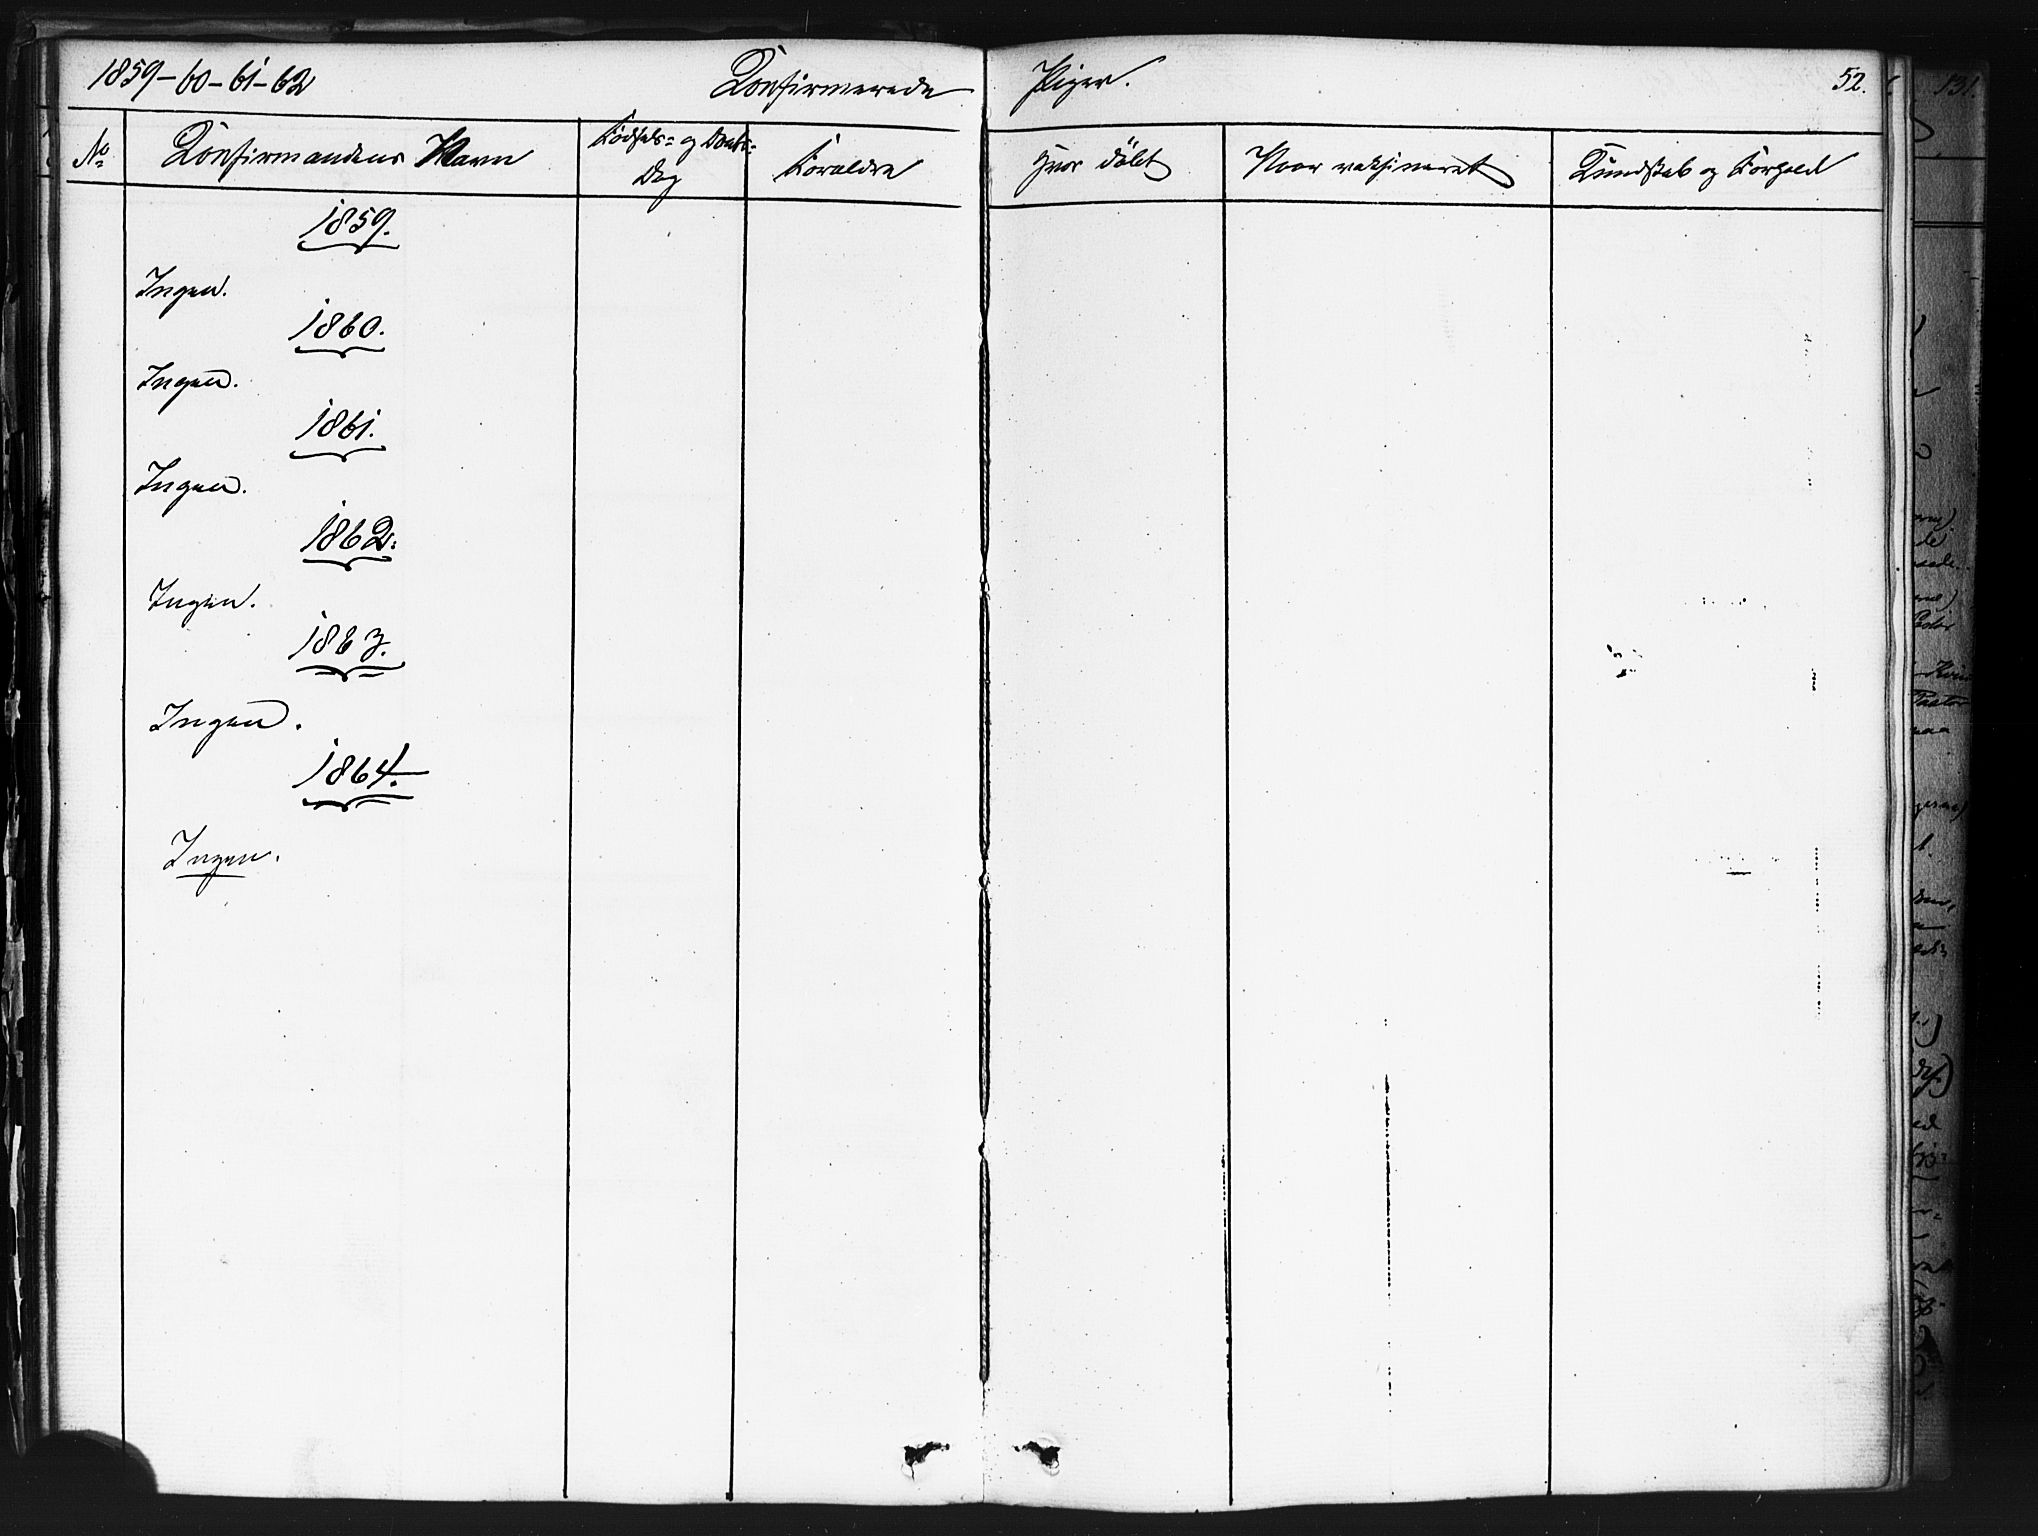 1859-60-61-62 Confirmerede Piger. 52.
No Confirmandens Navn Fødsels= og Daabs= Dag Forældre Hvor döbt Naar vaksineret Kundskab og Forhold
1859.
Ingen.
1860.
Ingen.
1861.
Ingen.
1862.
Ingen.
1863.
Ingen.
1864.
Ingen.
131.